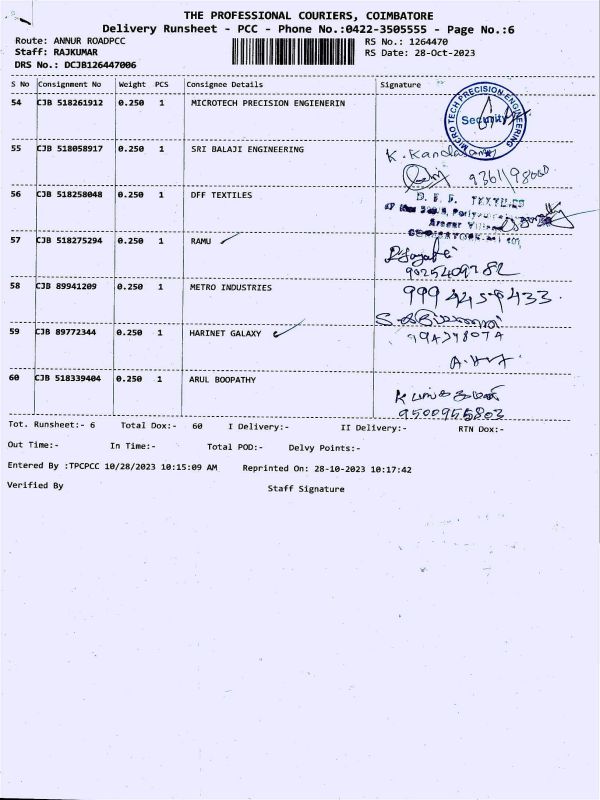 THE PROFESSIONAL COURIERS, COIMBATORE
Delivery Runsheet - PCC - Phone No.:0422-3505555 - Page No.:6
Route: ANNUR ROADPCC RS No.: 1264470
Staff: RAJKUMAR RS Date: 28-Oct-2023
DRS No.: DCJB126447006
S No Consignment No Weight PCS Consignee Details Signature
54 CJB 518261912 0.250 1 MICROTECH PRECISION ENGIENERIN
MICRO TECH PRECISION ENGINEERING
Security
55 CJB 518058917 0.250 1 SRI BALAJI ENGINEERING
K. Kandasamy
56 CJB 518258048 0.250 1 DFF TEXTILES
D. F. F. TEXTILES
57 CJB 518275294 0.250 1 RAMU
9025409782
58 CJB 89941209 0.250 1 METRO INDUSTRIES
9994459433.
59 CJB 89772344 0.250 1 HARINET GALAXY
60 CJB 518339404 0.250 1 ARUL BOOPATHY
9500955803
Tot. Runsheet:- 6 Total Dox:- 60 I Delivery:- II Delivery:- RTN Dox:-
Out Time:- In Time:- Total POD:- Delvy Points:-
Entered By :TPCPCC 10/28/2023 10:15:09 AM Reprinted On: 28-10-2023 10:17:42
Verified By Staff Signature